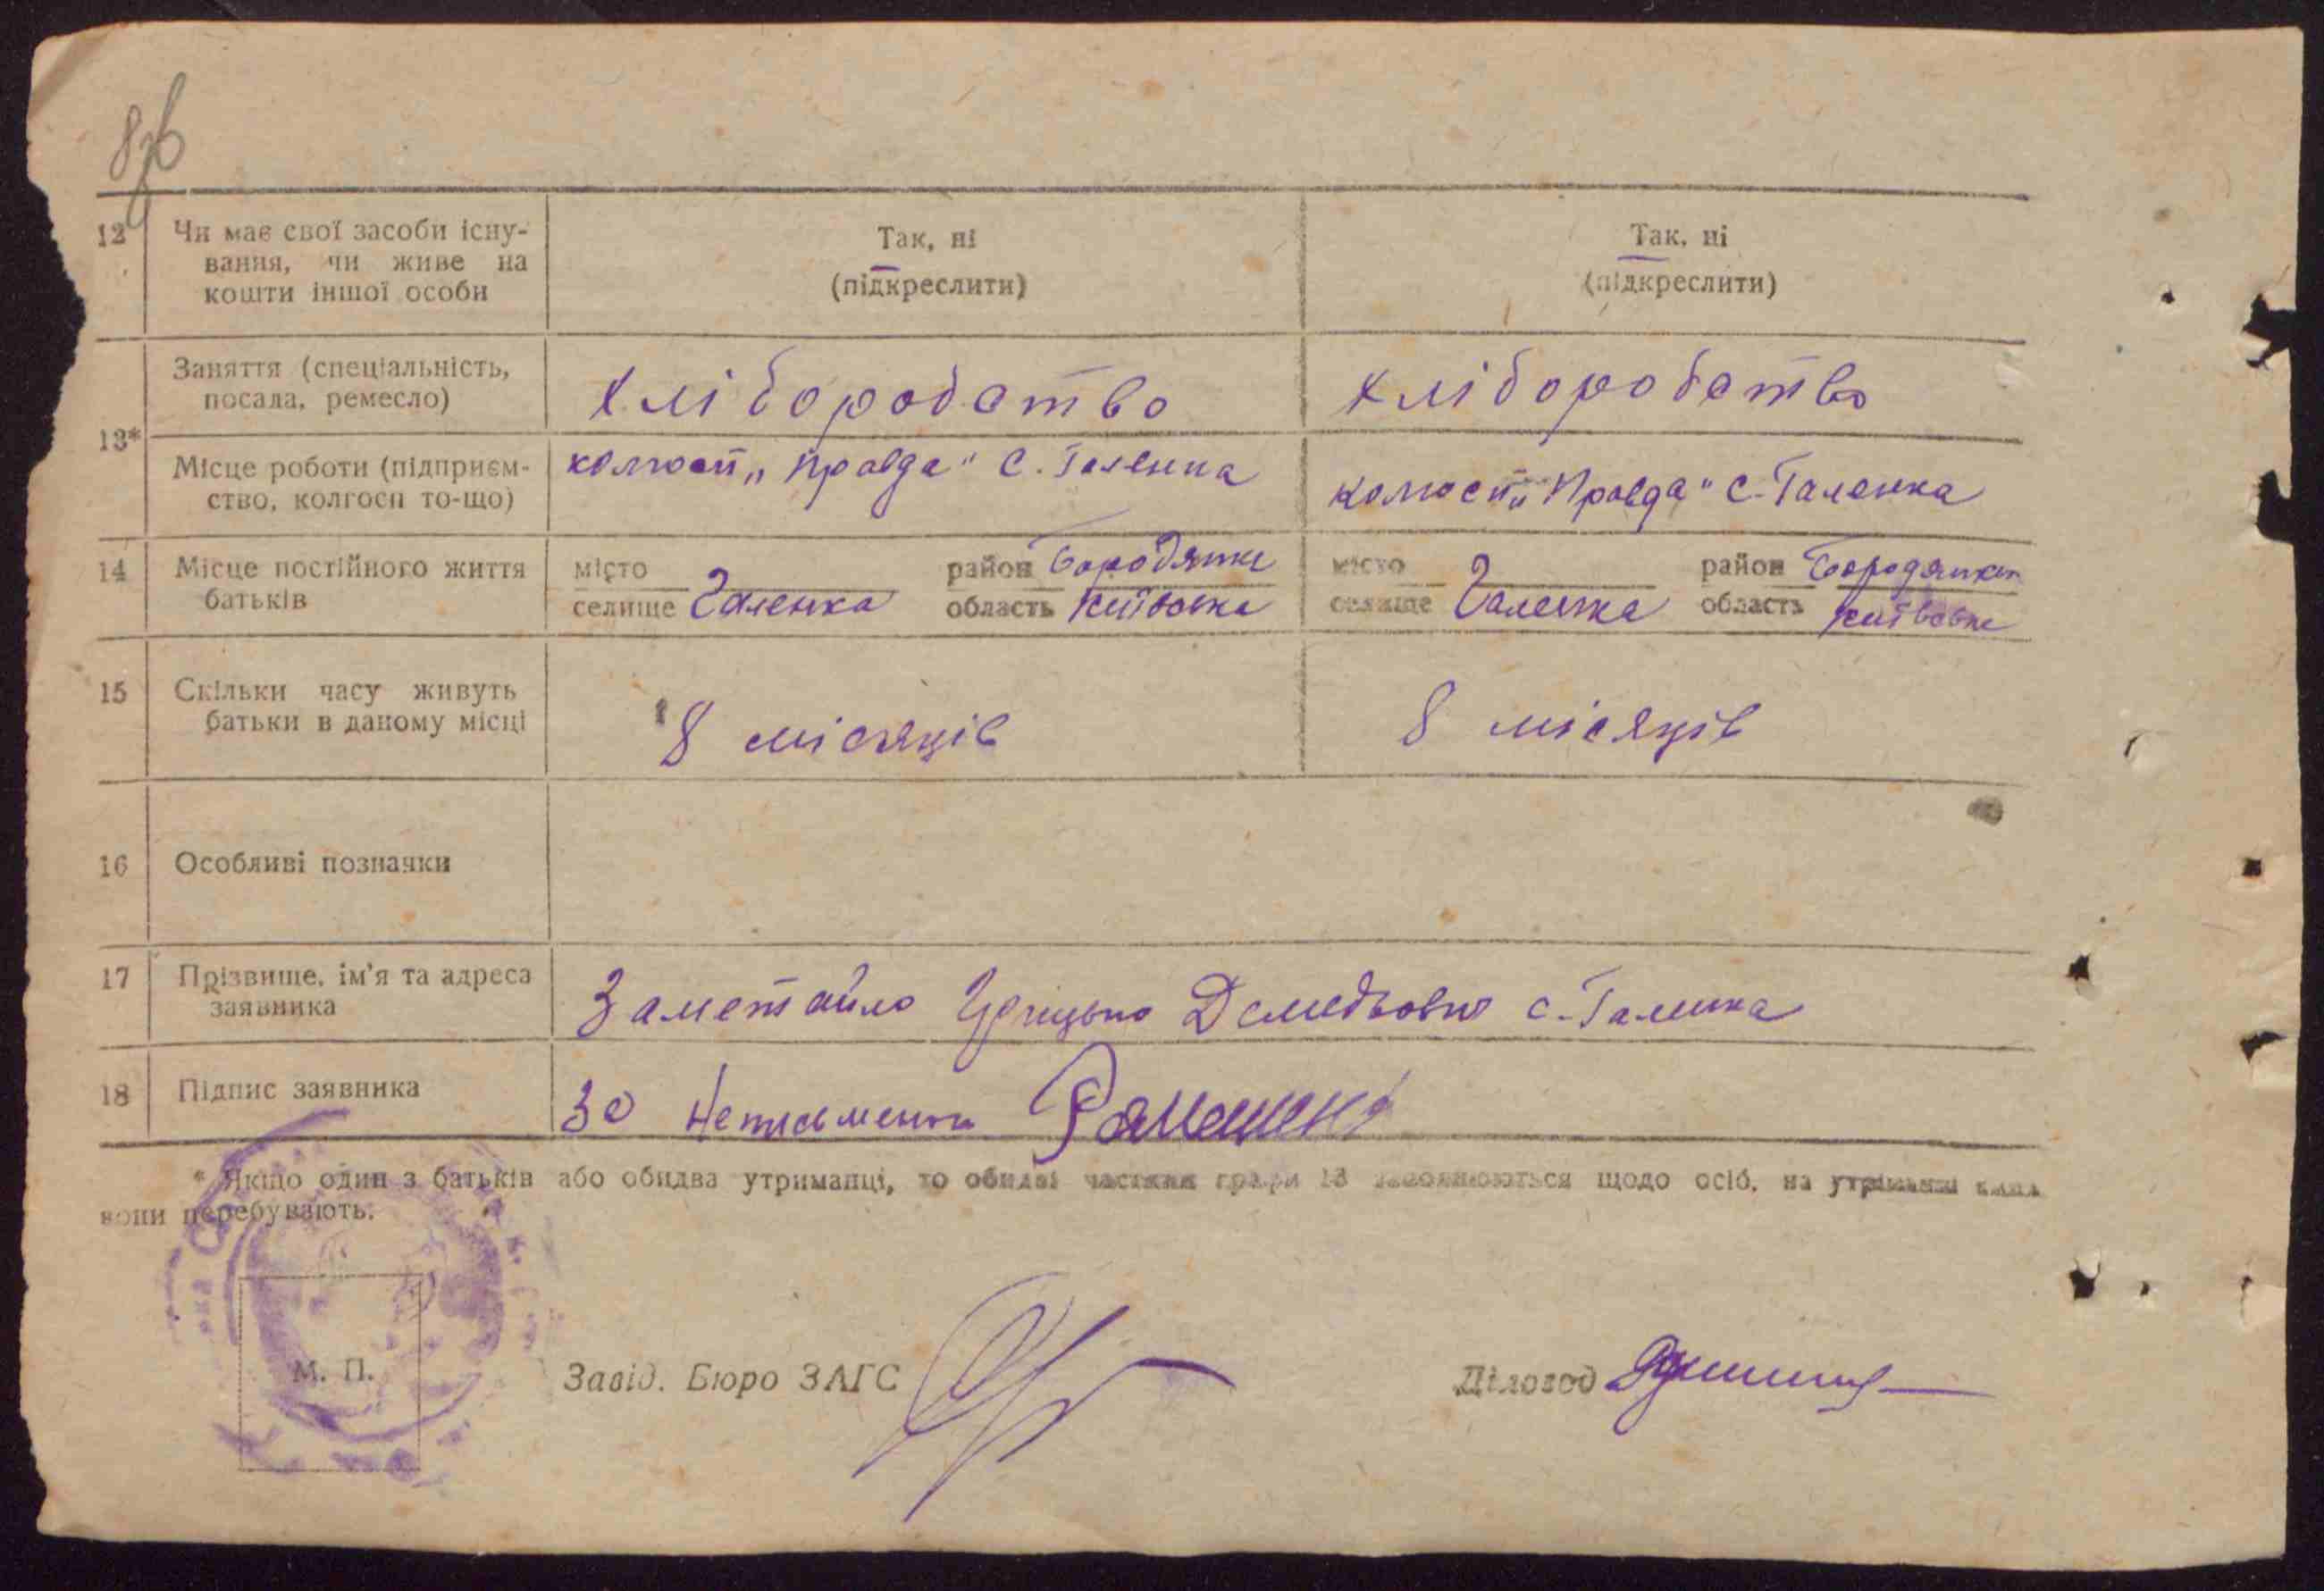 8зв
12 Чи має свої засоби існу-
вання, чи живе на
кошти іншої особи
Так, ні
(підкреслити)
Так, ні
(підкреслити)
13*
Заняття (спеціальність,
посада, ремесло)
Хліборобство
Хліборобство
Місце роботи (підприєм-
ство, колгосп то-що)
колгосп „Правда" С. Галенка
колгосп „Правда" С. Галенка
14 Місце постійного життя
батьків
місто
селище Галенка
район Бородянка
область Київська
місто
селище Галенка
район Бородянка
область Київська
15 Скільки часу живуть
батьки в даному місці
8 місяців
8 місяців
16 Особливі позначки
17 Прізвище, ім'я та адреса
заявника
Заметайло Грицько Демидович с. Галенка
18 Підпис заявника
За неписьмен.
* Якщо один з батьків або обидва утриманці, то обидві частини графи 13 заповнюються щодо осіб, на утриманні яких
вони перебувають.
М. П.
Завід. Бюро ЗАГС
Діловод